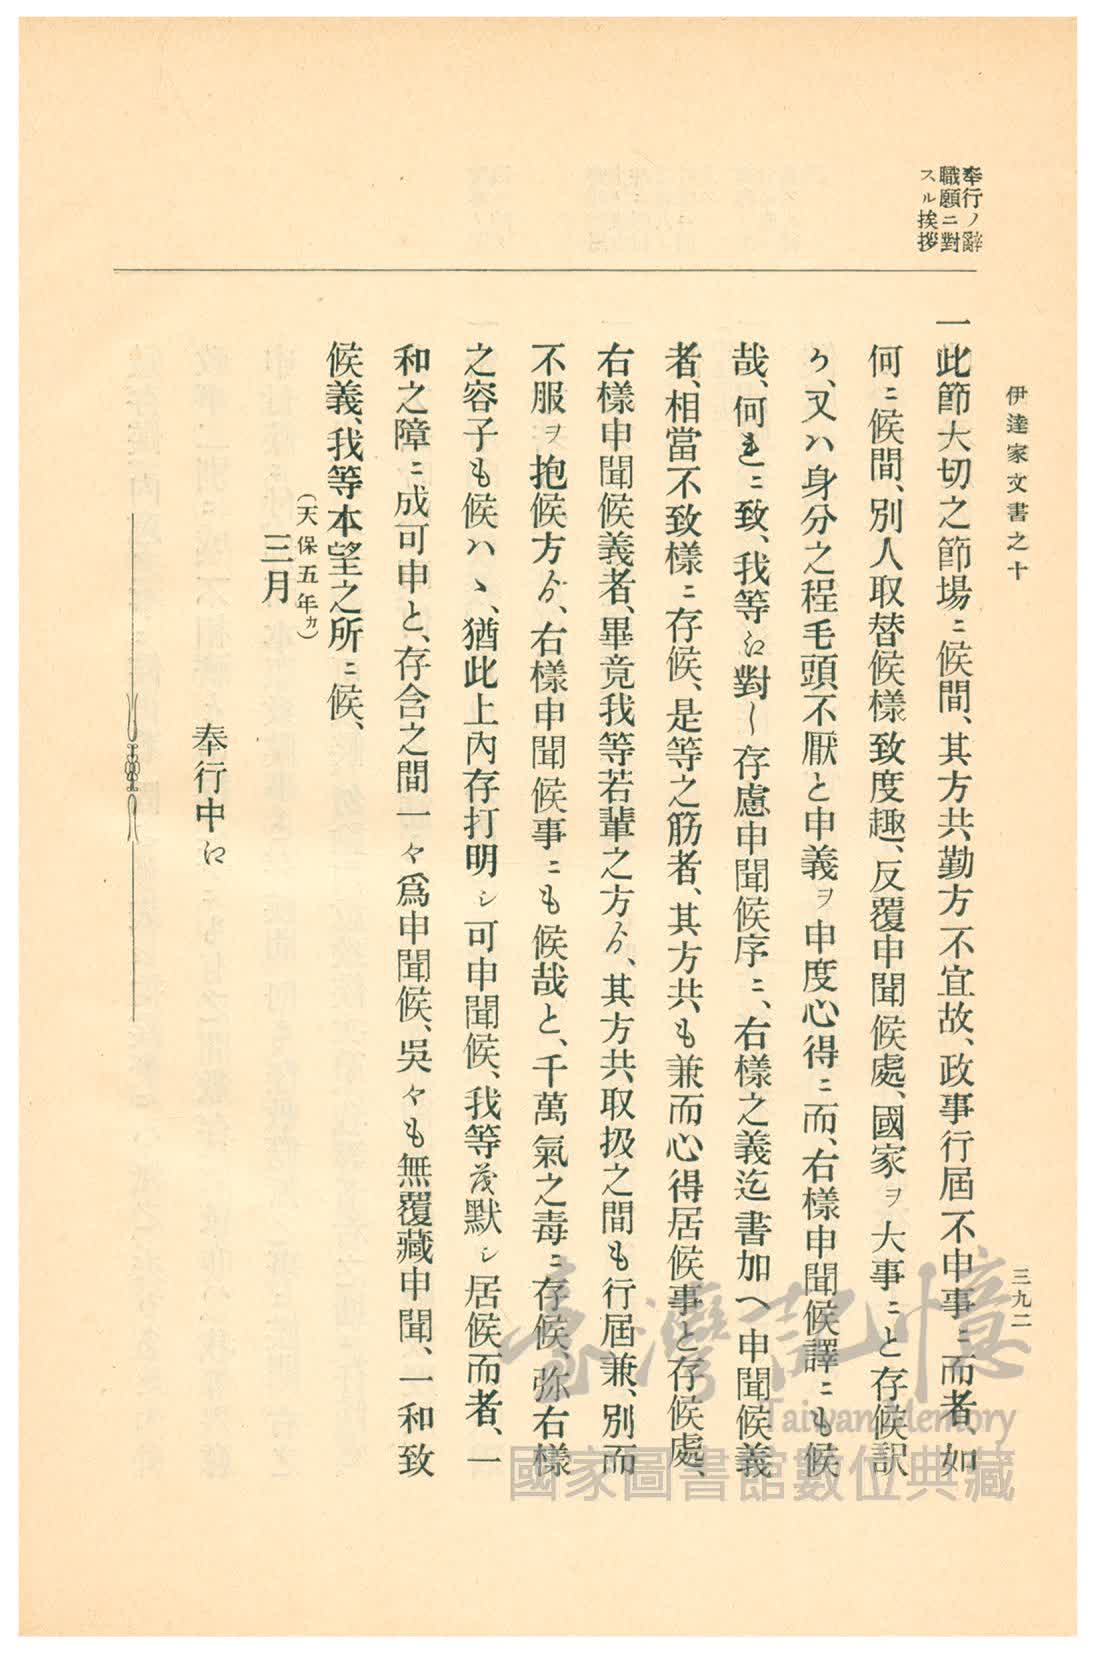 伊達家文書之十
三九二
奉行ノ辭
職願ニ對
スル挨拶
一此節大切之節場ニ候間、其方共勤方不宜故、政事行屆不申事ニ而者、如
何ニ候間、別人取替候樣致度趣、反覆申聞候處、國家ヲ大事ニと存候訳
ケ、又ハ身分之程毛頭不厭と申義ヲ申度心得ニ而、右樣申聞候譯ニも候
哉、何れニ致、我等江對し存慮申聞候序ニ、右樣之義迄書加へ申聞候義
者、相當不致樣ニ存候、是等之筋者、其方共も兼而心得居候事と存候處、
右樣申聞候義者、畢竟我等若輩之方ゟ、其方共取扱之間も行屆兼、別而
不服ヲ抱候方ゟ、右樣申聞候事ニも候哉と、千萬氣之毒ニ存候、弥右樣
之容子も候ハヽ、猶此上內存打明シ可申聞候、我等茂默シ居候而者、一
和之障ニ成可申と、存含之間一々爲申聞候、吳々も無覆藏申聞、一和致
候義、我等本望之所ニ候、
(天保五年カ)
三月
奉行中江
臺灣記憶
Taiwan Memory
國家圖書館數位典藏